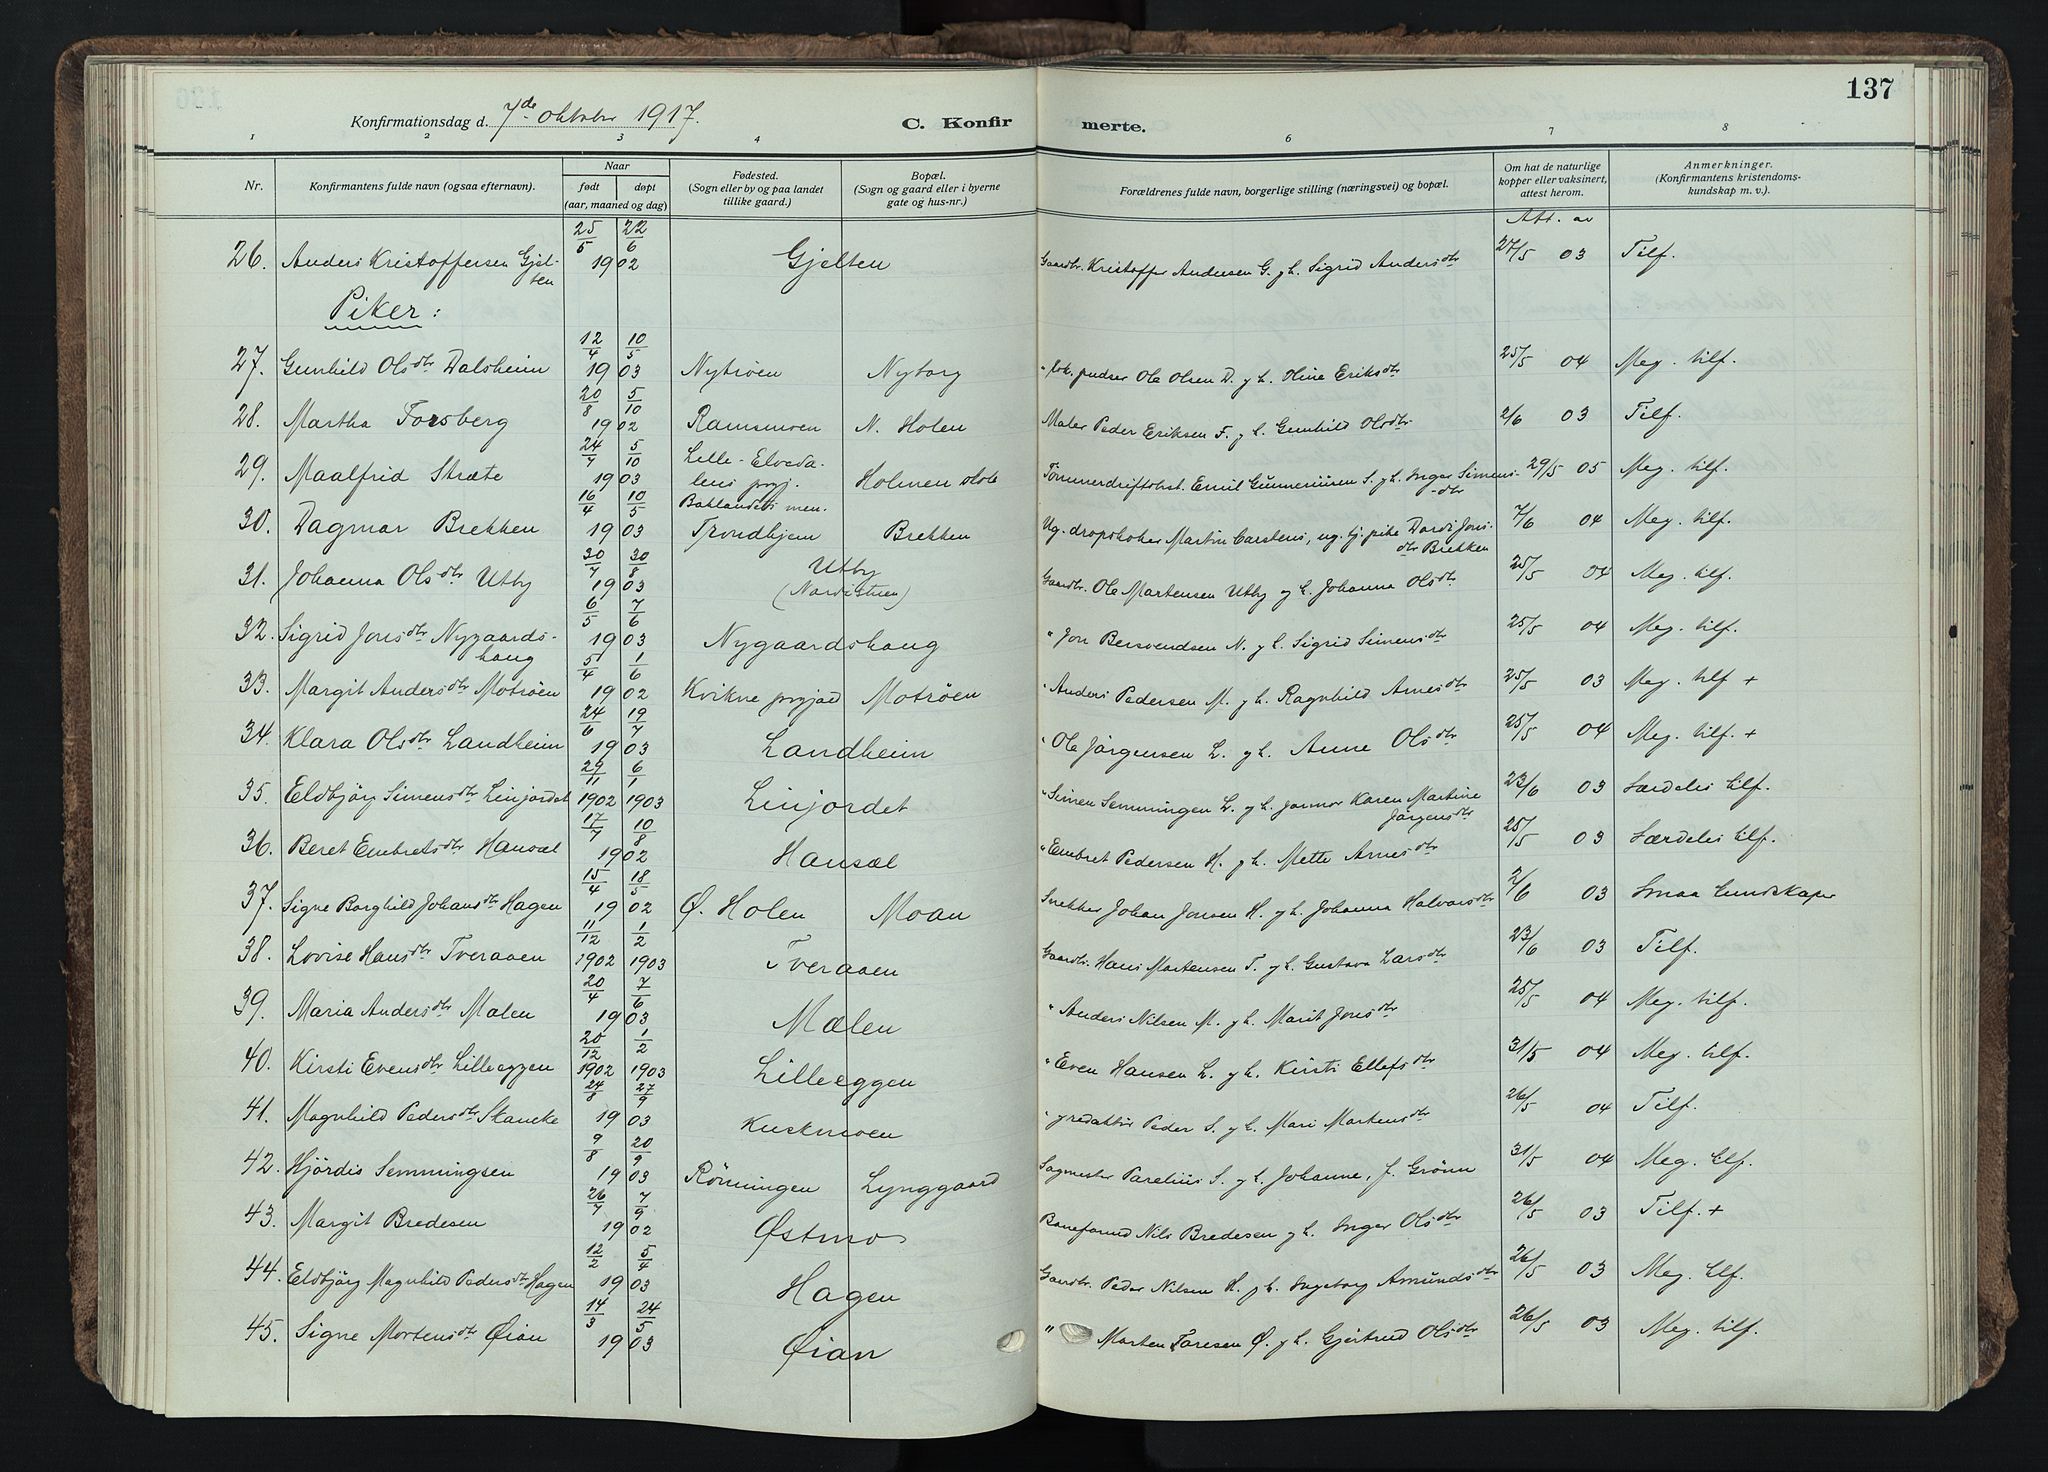 137
Konfirmationsdag d. 7de oktober 1917.
C. Konfirmerte.
1 2 3 4 6 7 8
Nr.
Konfirmantens fulde navn (ogsaa efternavn).
Naar
født døpt
(aar, maaned og dag)
Fødested.
(Sogn eller by og paa landet
tillike gaard.)
Bopæl.
(Sogn og gaard eller i byerne
gate og hus-nr.)
Forældrenes fulde navn, borgerlige stilling (næringsvei) og bopæl.
Om hat de naturlige
kopper eller vaksinert,
attest herom.
Anmerkninger.
(Konfirmantens kristendoms-
kundskap m. v.).
Att. av
26. Anders Kristoffersen Gjel-ten 25/5 22/6 1902 Gjelten Gaardbr. Kristoffer Andersen G. og h. Sigrid Andersdtr 27/5 03 Tilf.
Piker:
27. Gunhild Olsdtr Dalsheim 12/4 10/5 1903 Nytrøen Nyborg " lok. pudser Ole Olsen D. og h. Oline Eriksdtr 25/5 04 Meg. tilf.
28. Martha Forsberg 20/8 5/10 1902 Ramsmoen N. Holen Maler Peder Eriksen F. og h. Gunhild Olsdtr 2/6 03 Tilf.
29. Maalfrid Stræte 24/7 5/10 1903 Lille-Elveda-lens prgj. Holmen Tømmerdriftsbst. Emil Gunneriusen S. og h. Inger Simens-dtr 29/5 05 Meg. tilf.
30. Dagmar Brekken 16/4 10/5 1903 Baklandets men. Trondhjem Brekken Ug. dropskoker Martin Carstens, ug. tj. pike Dordi Jons-dtr Brekken 7/6 04 Meg. tilf.
31. Johanna Olsdtr Utby 30/7 30/8 1903 Utby (Nordistuen) Gaardbr. Ole Martensen Utby og h. Johanna Olsdtr 25/5 04 Meg. tilf.
32. Sigrid Jonsdtr Nygaards-haug 6/5 7/6 1903 Nygaardshaug " Jon Bersvendsen N. og h. Sigrid Simensdtr 25/5 04 Meg. tilf.
33. Margit Andersdtr Motrøen 5/4 1/6 1902 Kvikne prgjæld Motrøen " Anders Pedersen M. og h. Ragnhild Arnesdtr 25/5 03 Meg. tilf +
34. Klara Olsdtr Landheim 24/6 19/7 1903 Landheim " Ole Jörgensen L. og h. Anne Olsdtr 25/5 04 Meg. tilf. +
35. Eldbjörg Simensdtr Linjordet 29/11 6/1 1902 1903 Linjordet " Simen Semmingsen L. og h. jormor Karen Martine Jörgensdtr 23/6 03 Særdeles tilf.
36. Beret Embretsdtr Hansæl 17/7 10/8 1902 Hansæl " Embret Pedersen H. og h. Mette Arnesdtr 25/5 03 Særdeles tilf.
37. Signe Borghild Johansdtr Hagen 15/4 18/5 1902 Ø. Holen Moan Snekker Johan Jonsen H. og h. Johanna Halvorsdtr 2/6 03 Smaa kundskaper
38. Lovise Hansdtr Tveraaen 11/12 1/2 1902 1903 Tveraaen Gaardbr. Hans Mortensen T. og h. Gustava Larsdtr 23/6 03 Tilf.
39. Maria Andersdtr Mælen 20/4 7/6 1903 Mælen " Anders Nilsen M. og h. Marit Jonsdtr 25/5 04 Meg. tilf.
40. Kirsti Evensdtr Lilleeggen 20/12 1/2 1902 1903 Lilleeggen " Even Hansen L. og h. Kirsti Ellefsdtr 31/5 04 Meg. tilf.
41. Magnhild Pedersdtr Skancke 24/8 27/9 1903 Kuskmoen " og redaktör Peder S. og h. Mari Martensdtr 26/5 04 Tilf.
42. Hjördis Semmingsen 9/8 20/9 1903 Rönningen Lynggaard Sagmester Parelius S. og h. Johanne, f. Grönn 31/5 04 Meg. tilf.
43. Margit Bredesen 26/7 7/9 1902 Østmo Baneformd Nils Bredesen og h. Inger Olsdtr 26/5 03 Tilf. +
44. Eldbjörg Magnhild Pedersdtr Hagen 12/2 5/4 1903 Hagen Gaardbr. Peder Nilsen H. og h. Ingeborg Amundsdtr 26/5 03 Meg. tilf.
45. Signe Mortensdtr Øian 14/3 24/5 1903 Øian " Morten Toresen Ø. og h. Gjertrud Olsdtr 26/5 03 Meg. tilf.